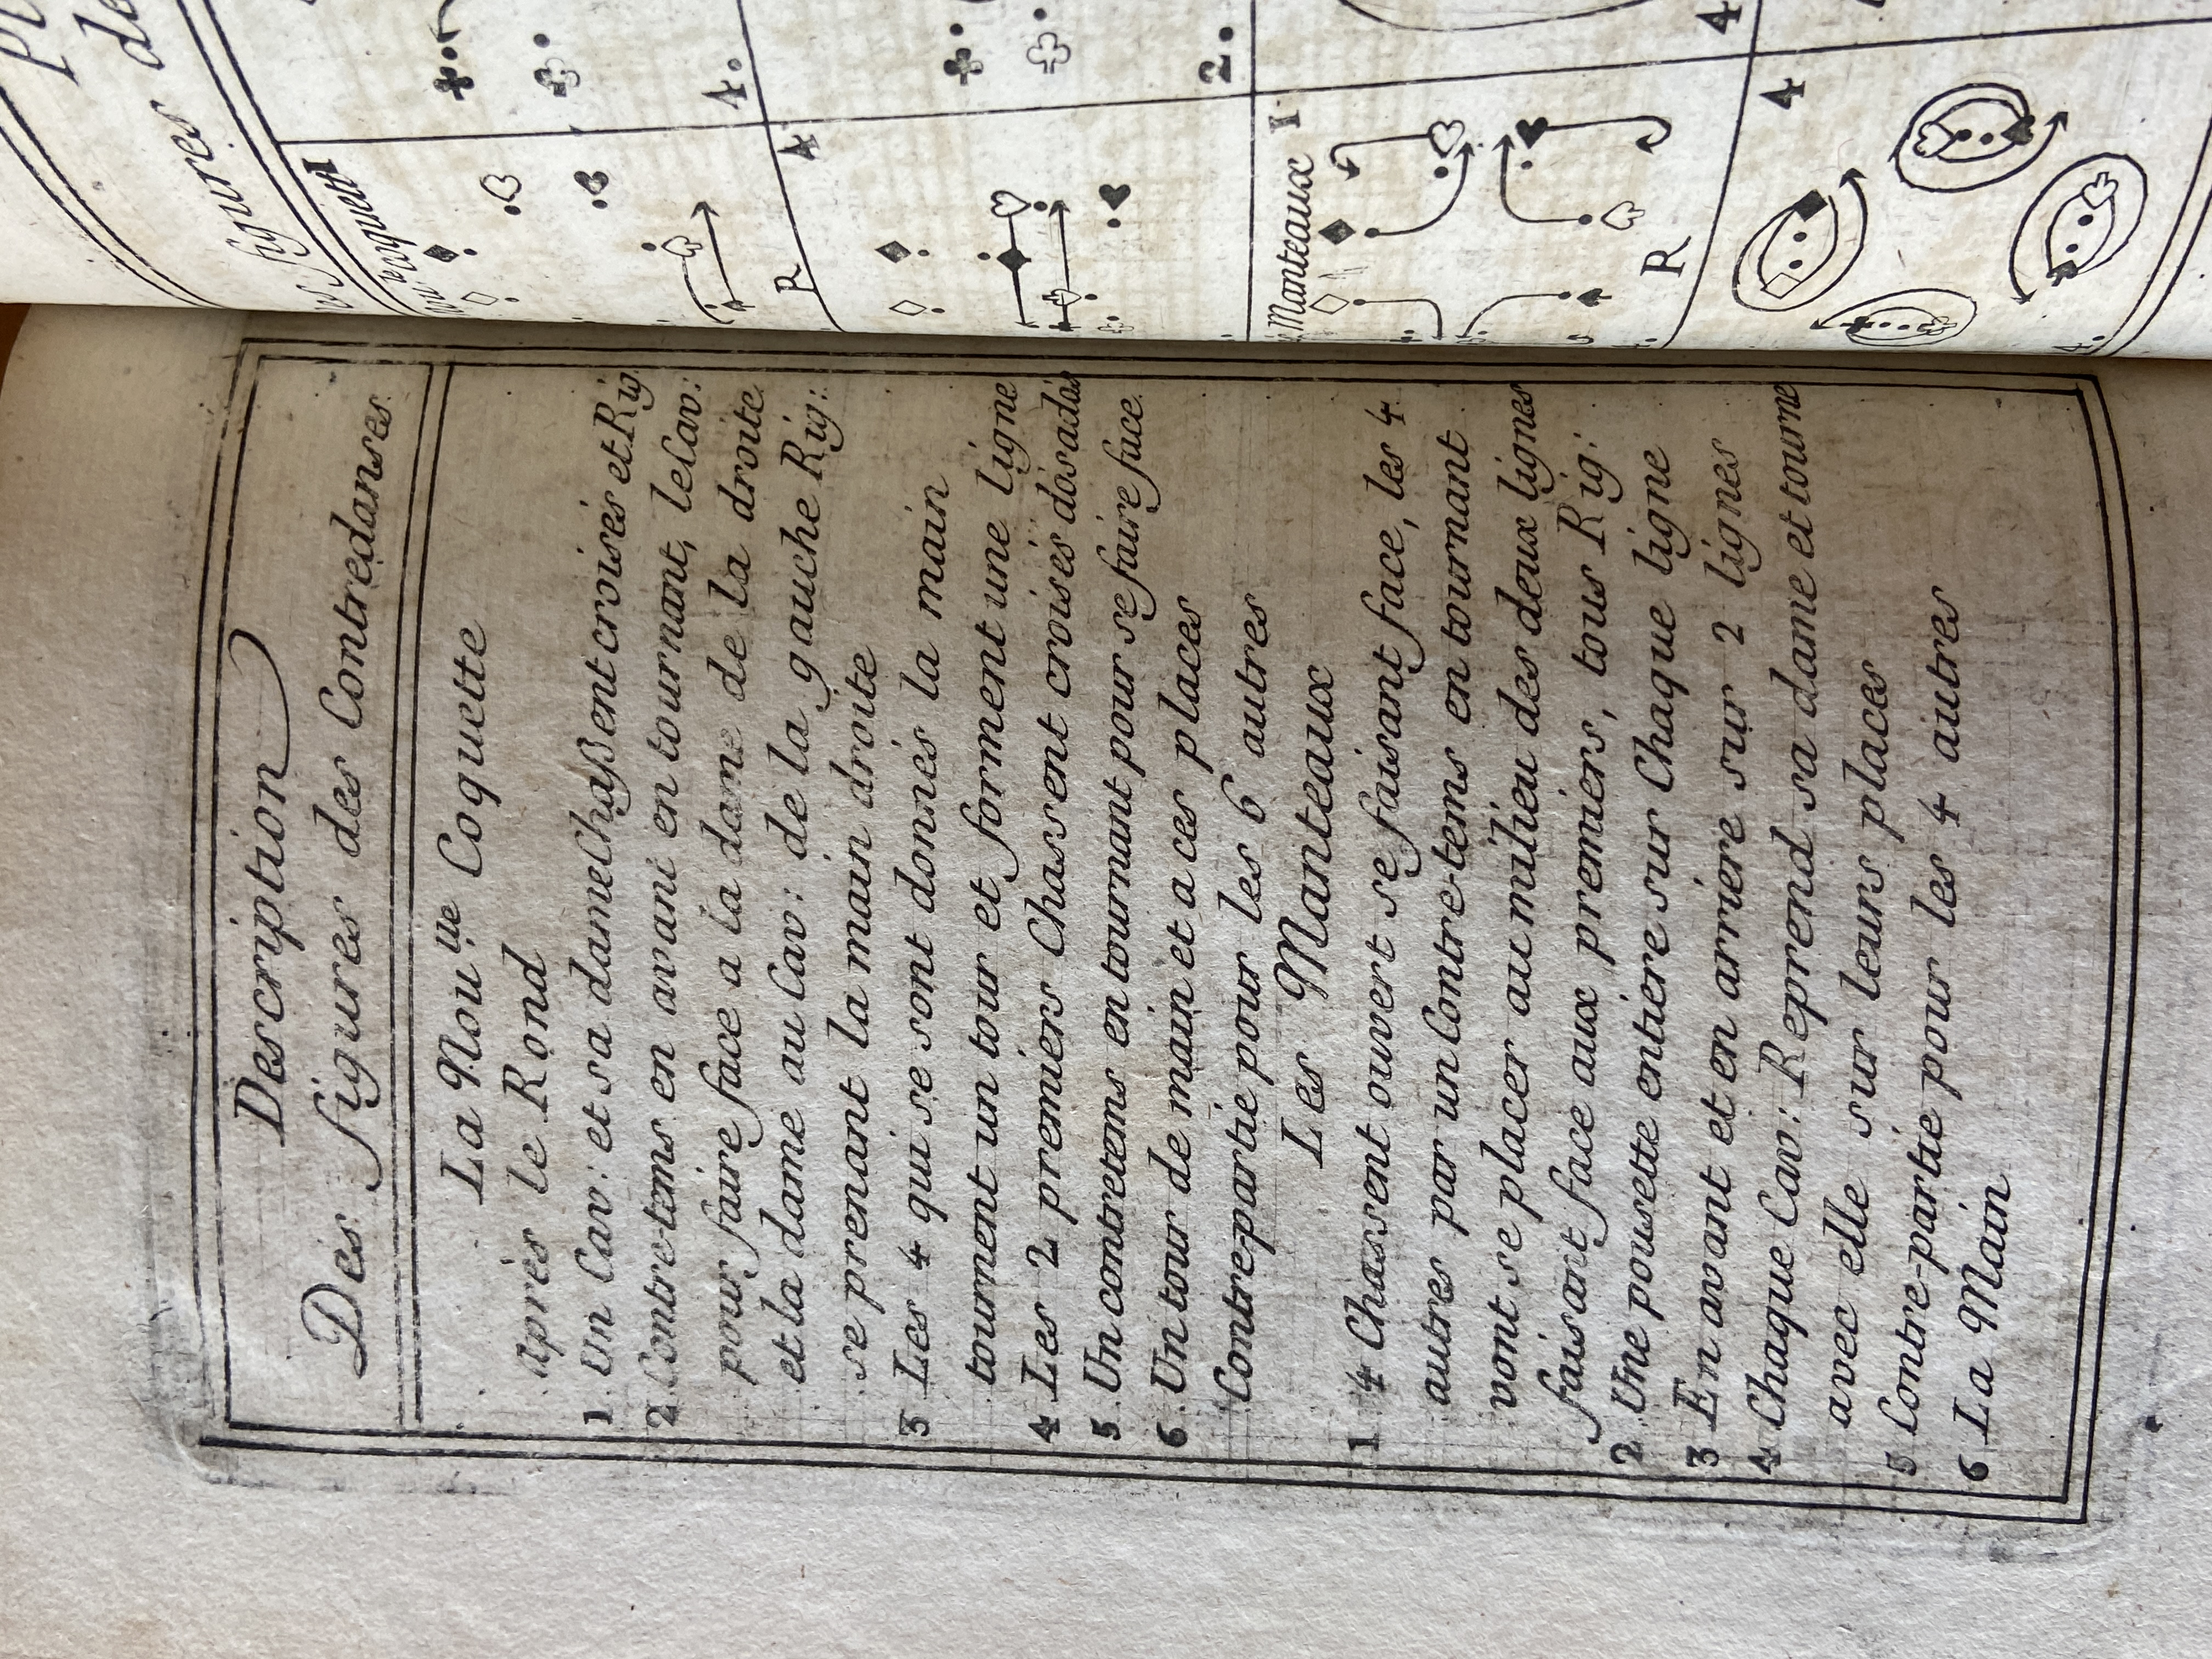 Description
Des figures des Contredanses.
La Nou.lle Coquette
Après le Rond
1. Un Cav: et sa dame Chaßent croisés et Rig.
2. Contre-tems en avant en tournant, le Cav:
pour faire face a la dame de la droite
et la dame au Cav: de la gauche Rig:
se prenant la main droite
3 Les 4 qui se sont donnés la main
tournent un tour et forment une ligne
4 Les 2 premiers Chassent croisés dos a dos
5. Un contretems en tournant pour se faire face.
6. Un tour de main et a ces places
Contre-partie pour les 6 autres
Les Manteaux
1 4 Chassent ouvert se faisant face, les 4
autres par un Contre-tems en tournant
vont se placer au milieu des deux lignes
faisant face aux premiers, tous Rig:
2 Une pousette entiere sur Chaque ligne
3 En avant et en arriere sur 2 lignes
4 Chaque Cav: Reprend sa dame et tourne
avec elle sur leurs places
5 Contre-partie pour les 4 autres
6 La Main
figures de
4.
R 4
2.
Manteaux 1
4
R
4
4.